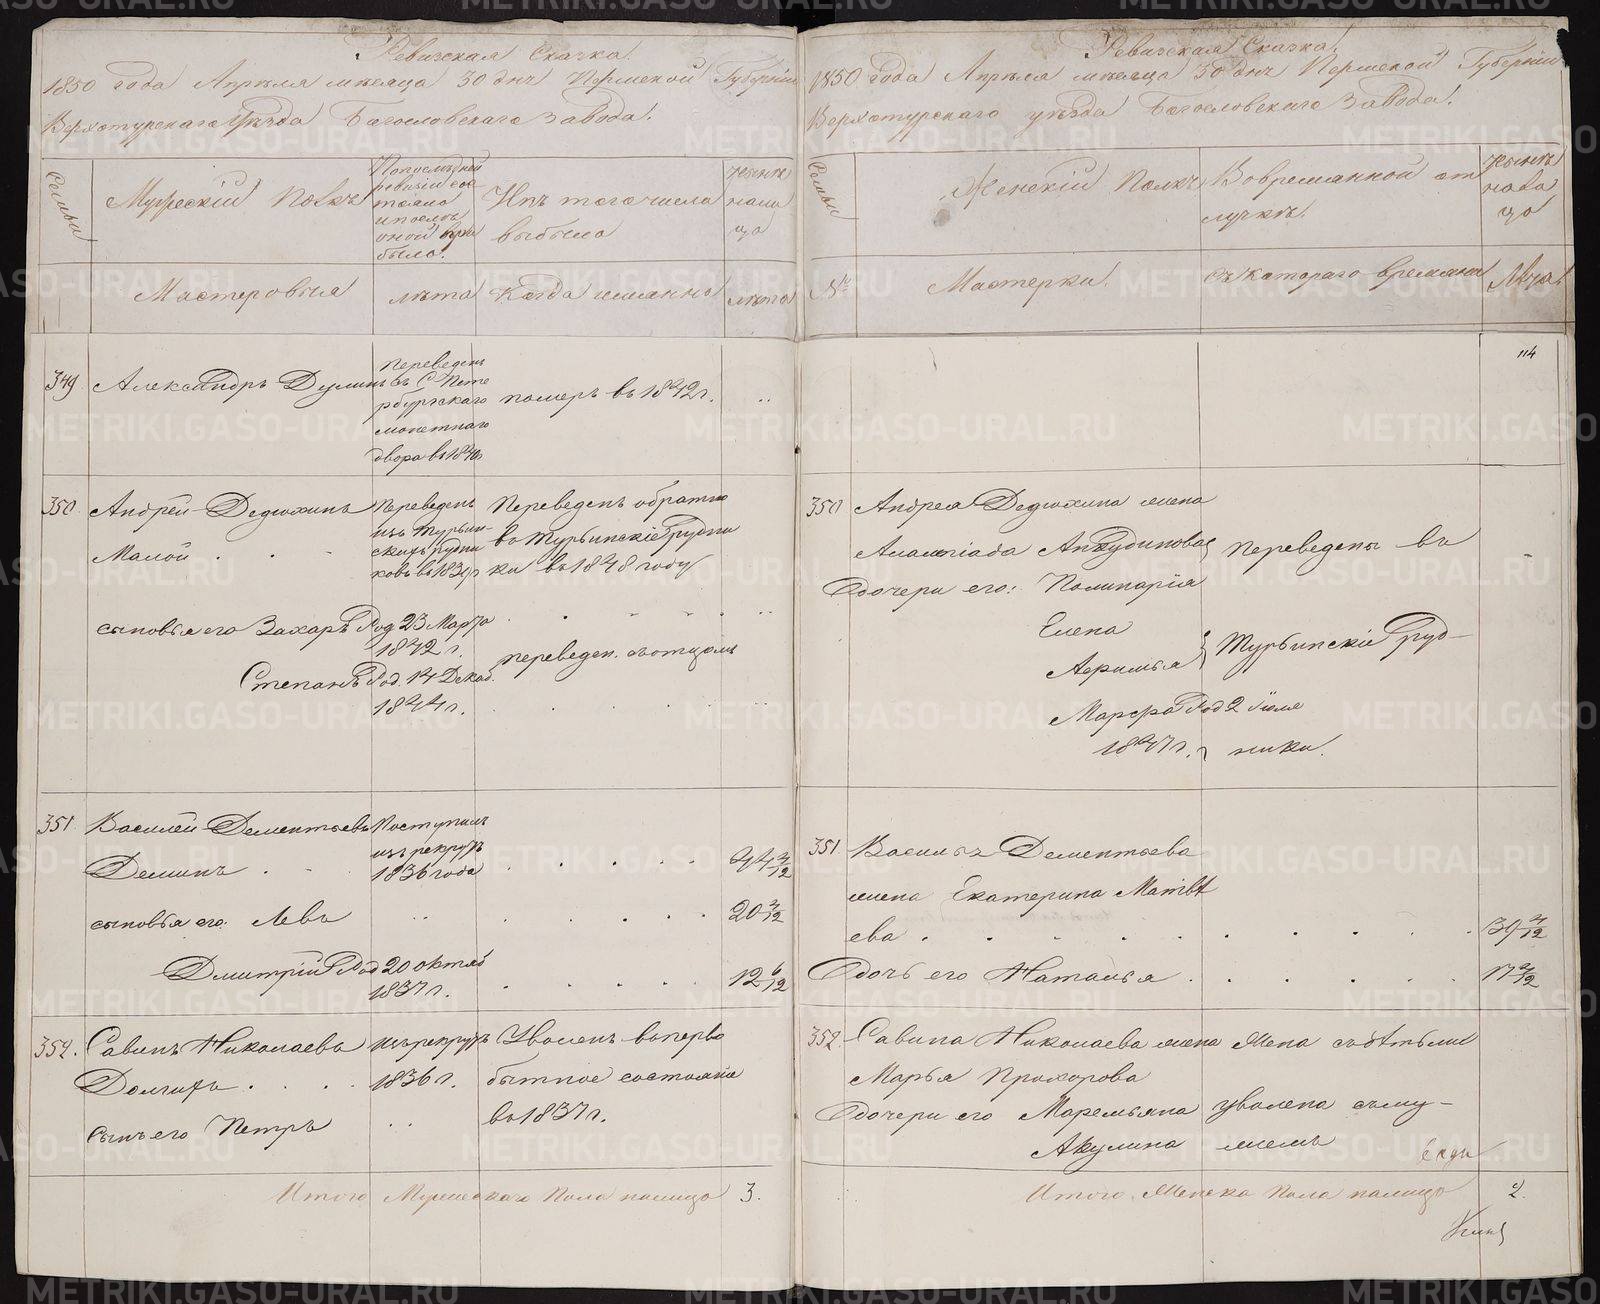 Ревизская Сказка
1850 года Апреля месяца 30 дня Пермской Губернии
Верхотурскаго Уезда Богословскаго Завода.
Семьи
Мужескій Полъ
По последней ревизіи состояло и после оной прибыло.
Изъ того числа выбыло
Ныне на лицо
Мастеровыя
лета
Когда именно
лета
349
Александръ Дулинъ
Переведенъ
въ С. Пете
рбургскаго
монетнаго
двора въ 1840
померъ въ 1842 г.
350
Андрей Дедюхинъ
Малой
Переведенъ
изъ Турьин-
скихъ рудни
ковъ въ 1839 г
Переведенъ обратно
въ Турьинскіе Рудни
ки въ 1848 году
сыновья его Захаръ Род 23 Марта
1842 г.
Степанъ Род. 14 Декаб.
1844 г.
переведен. съ отцомъ
351
Василей Дементьевъ
Деминъ
Поступилъ
изъ рекрутъ
1836 года
44 4/12
сыновья его: Левъ
20 4/12
Дмитрій Род 20 октяб
1837 г.
12 6/12
352.
Савинъ Николаевъ
Долгихъ
изъ рекрутъ
1836 г.
Уволенъ въ перво
бытное состояніе
въ 1837 г.
сынъ его Петръ
Итого Мужескаго Пола налицо 3.
Ревизская Сказка.
1850 года Апреля месяца 30 дня Пермской Губерніи
Верхотурскаго уезда Богословскаго Завода.
Семьи
Женскій Полъ
Во временной от
лучке.
Ныне
на ли
цо
№
Мастерки.
Съ котораго времени
Лета
114
350
Андрея Дедюхина жена
Анкудинова
Переведены въ
дочери его:
Елена
Турьинскіе Руд-
Марфа Род 2 Іюля
1847 г.
ники.
351
Василья Дементьева
жена Екатерина Матвѣ
ева
39 4/12
Дочь его Наталья
17 4/12
352.
Савина Николаева жена
Марья Прохорова
дочери его Маремьяна уволена съ му-
Акулина жемъ
Итого Женска Пола налицо 2.
METRIKI.GASO-URAL.RU